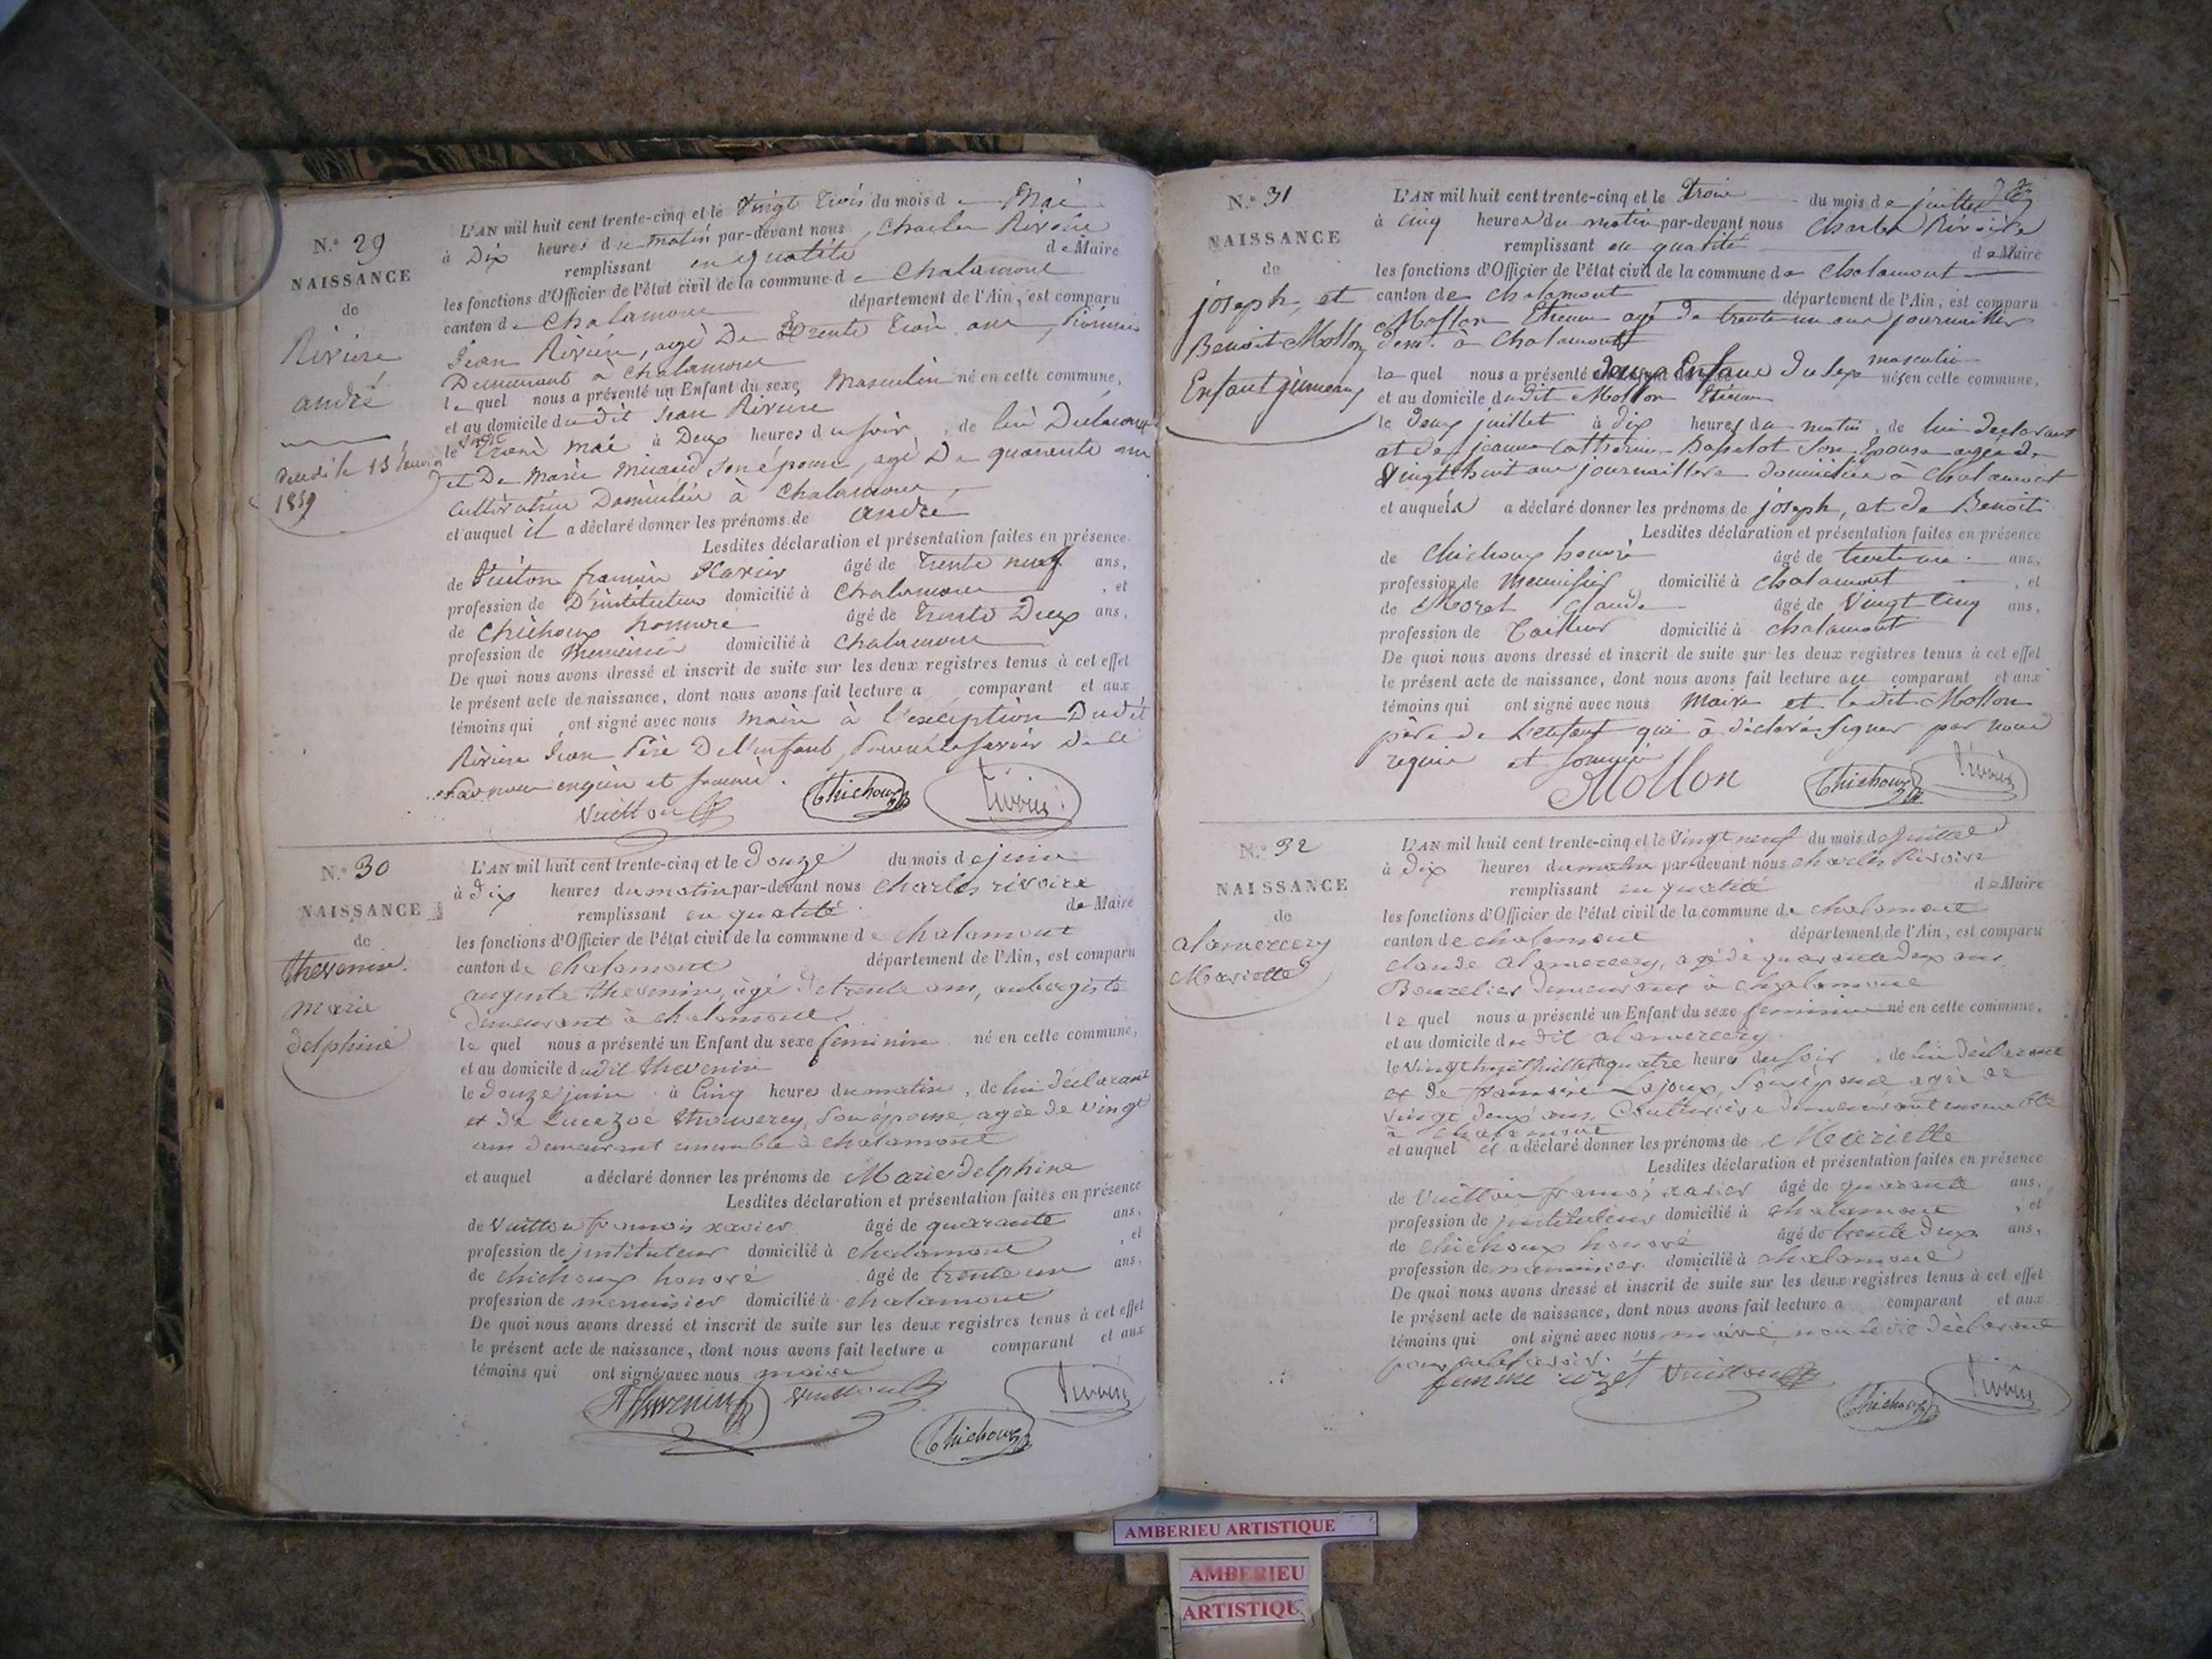 N.° 29
NAISSANCE
de
Rivière
andré
1859
L'AN mil huit cent trente-cinq et le Vingt trois du mois de Mai
à Dix heures du matin par-devant nous Charles Rivoire
remplissant en qualité de Maire
les fonctions d'Officier de l'état civil de la commune de Chalamont
canton de Chalamont département de l'Ain, est comparu
Jean Rivière, agé De trente trois ans,
Demeurant à Chalamont
le quel nous a présenté un Enfant du sexe Masculin né en cette commune,
et au domicile dudit Jean Rivière
le vingt trois mai à Deux heures du soir, de lui Déclarant
et De Marie son épouse, agé De quarante ans
cultivatrice Domiciliée à Chalamont
et auquel il a déclaré donner les prénoms de andré
Lesdites déclaration et présentation faites en présence
de Vuitton françois Xavier âgé de trente neuf ans,
profession de D'instituteur domicilié à Chalamont, et
de Chichoux honnore âgé de trente Deux ans,
profession de menuisier domicilié à Chalamont
De quoi nous avons dressé et inscrit de suite sur les deux registres tenus à cet effet
le présent acte de naissance, dont nous avons fait lecture a comparant et aux
témoins qui ont signé avec nous maire à l'exception Dudit
Rivière Jean Père De l'enfant, pour ne le savoir De ce
par nous enquis et sommé.
Vuitton Chichoux
N.° 30
NAISSANCE
de
thevenin.
marie
delphine
L'AN mil huit cent trente-cinq et le douze du mois de juin
à dix heures du matin par-devant nous Charles rivoire
remplissant en qualité de Maire
les fonctions d'Officier de l'état civil de la commune de chalamont
canton de chalamont département de l'Ain, est comparu
auguste thevenin, âgé de trente ans, aubergiste
demeurant à chalamont
le quel nous a présenté un Enfant du sexe feminin né en cette commune,
et au domicile dudit thevenin
le douze juin à Cinq heures du matin, de lui déclarant
et de Luce zoé son épouse agée de vingt
ans demeurant ensemble à chalamont
et auquel a déclaré donner les prénoms de Marie delphine
Lesdites déclaration et présentation faites en présence
de Vuitton françois xavier âgé de quarante ans,
profession de jnstituteur domicilié à chalamont, et
de chichoux honoré âgé de trente un ans,
profession de menuisier domicilié à chalamont
De quoi nous avons dressé et inscrit de suite sur les deux registres tenus à cet effet
le présent acte de naissance, dont nous avons fait lecture a comparant et aux
témoins qui ont signé avec nous maire
Thevenin Vuitton
Chichoux
N.° 31
NAISSANCE
de
joseph, et
Benoit Mollon
Enfant jumeaux
L'AN mil huit cent trente-cinq et le Trois du mois de juillet
à cinq heures du matin par-devant nous Charles Rivoire
remplissant en qualité de Maire
les fonctions d'Officier de l'état civil de la commune de chalamont
canton de chalamont département de l'Ain, est comparu
Mollon Etienne agé de trente un ans journallier
dem.t à Chalamont
le quel nous a présenté deux Enfans du sexe masculin nés en cette commune,
et au domicile dudit Mollon Etienne
le deux juillet à dix heures du matin, de lui déclarant
et de jeanne Catherine son Epouse agée de
Vingt huit ans journallière domiciliée à Chalamont
et auquels a déclaré donner les prénoms de joseph, et de Benoit
Lesdites déclaration et présentation faites en présence
de Chichoux honoré âgé de trente un ans,
profession de Menuisier domicilié à chalamont, et
de Moret Claude âgé de Vingt Cinq ans,
profession de Tailleur domicilié à chalamont
De quoi nous avons dressé et inscrit de suite sur les deux registres tenus à cet effet
le présent acte de naissance, dont nous avons fait lecture au comparant et aux
témoins qui ont signé avec nous Maire et le dit Mollon
père de L'enfant qui à déclaré signer par nous
requis et sommé
Mollon Chichoux
N.° 32
NAISSANCE
de
alamercery
Mariette
L'AN mil huit cent trente-cinq et le Vingt neuf du mois de Juillet
à dix heures du matin par-devant nous charles Rivoire
remplissant en qualité de Maire
les fonctions d'Officier de l'état civil de la commune de chalamont
canton de chalamont département de l'Ain, est comparu
claude alamercery, agé de quarante deux ans
Bourelier demeurant à chalamont
le quel nous a présenté un Enfant du sexe feminin né en cette commune,
et au domicile du dit alamercery
le Vingt huit juillet à quatre heures du soir, de lui déclarant
et de françoise Lajoux, son épouse agée de
vingt deux ans, Couturière demeurant ensemble
à chalamont
et auquel il a déclaré donner les prénoms de Mariette
Lesdites déclaration et présentation faites en présence
de Vuitton françois xavier âgé de quarante ans,
profession de jnstituteur domicilié à chalamont, et
de chichoux honoré âgé de trente deux ans,
profession de menuisier domicilié à chalamont
De quoi nous avons dressé et inscrit de suite sur les deux registres tenus à cet effet
le présent acte de naissance, dont nous avons fait lecture a comparant et aux
témoins qui ont signé avec nous maire, non le dit déclarant
pour ne le savoir.
femme Vuitton
Chichoux
AMBERIEU ARTISTIQUE
AMBERIEU
ARTISTIQU